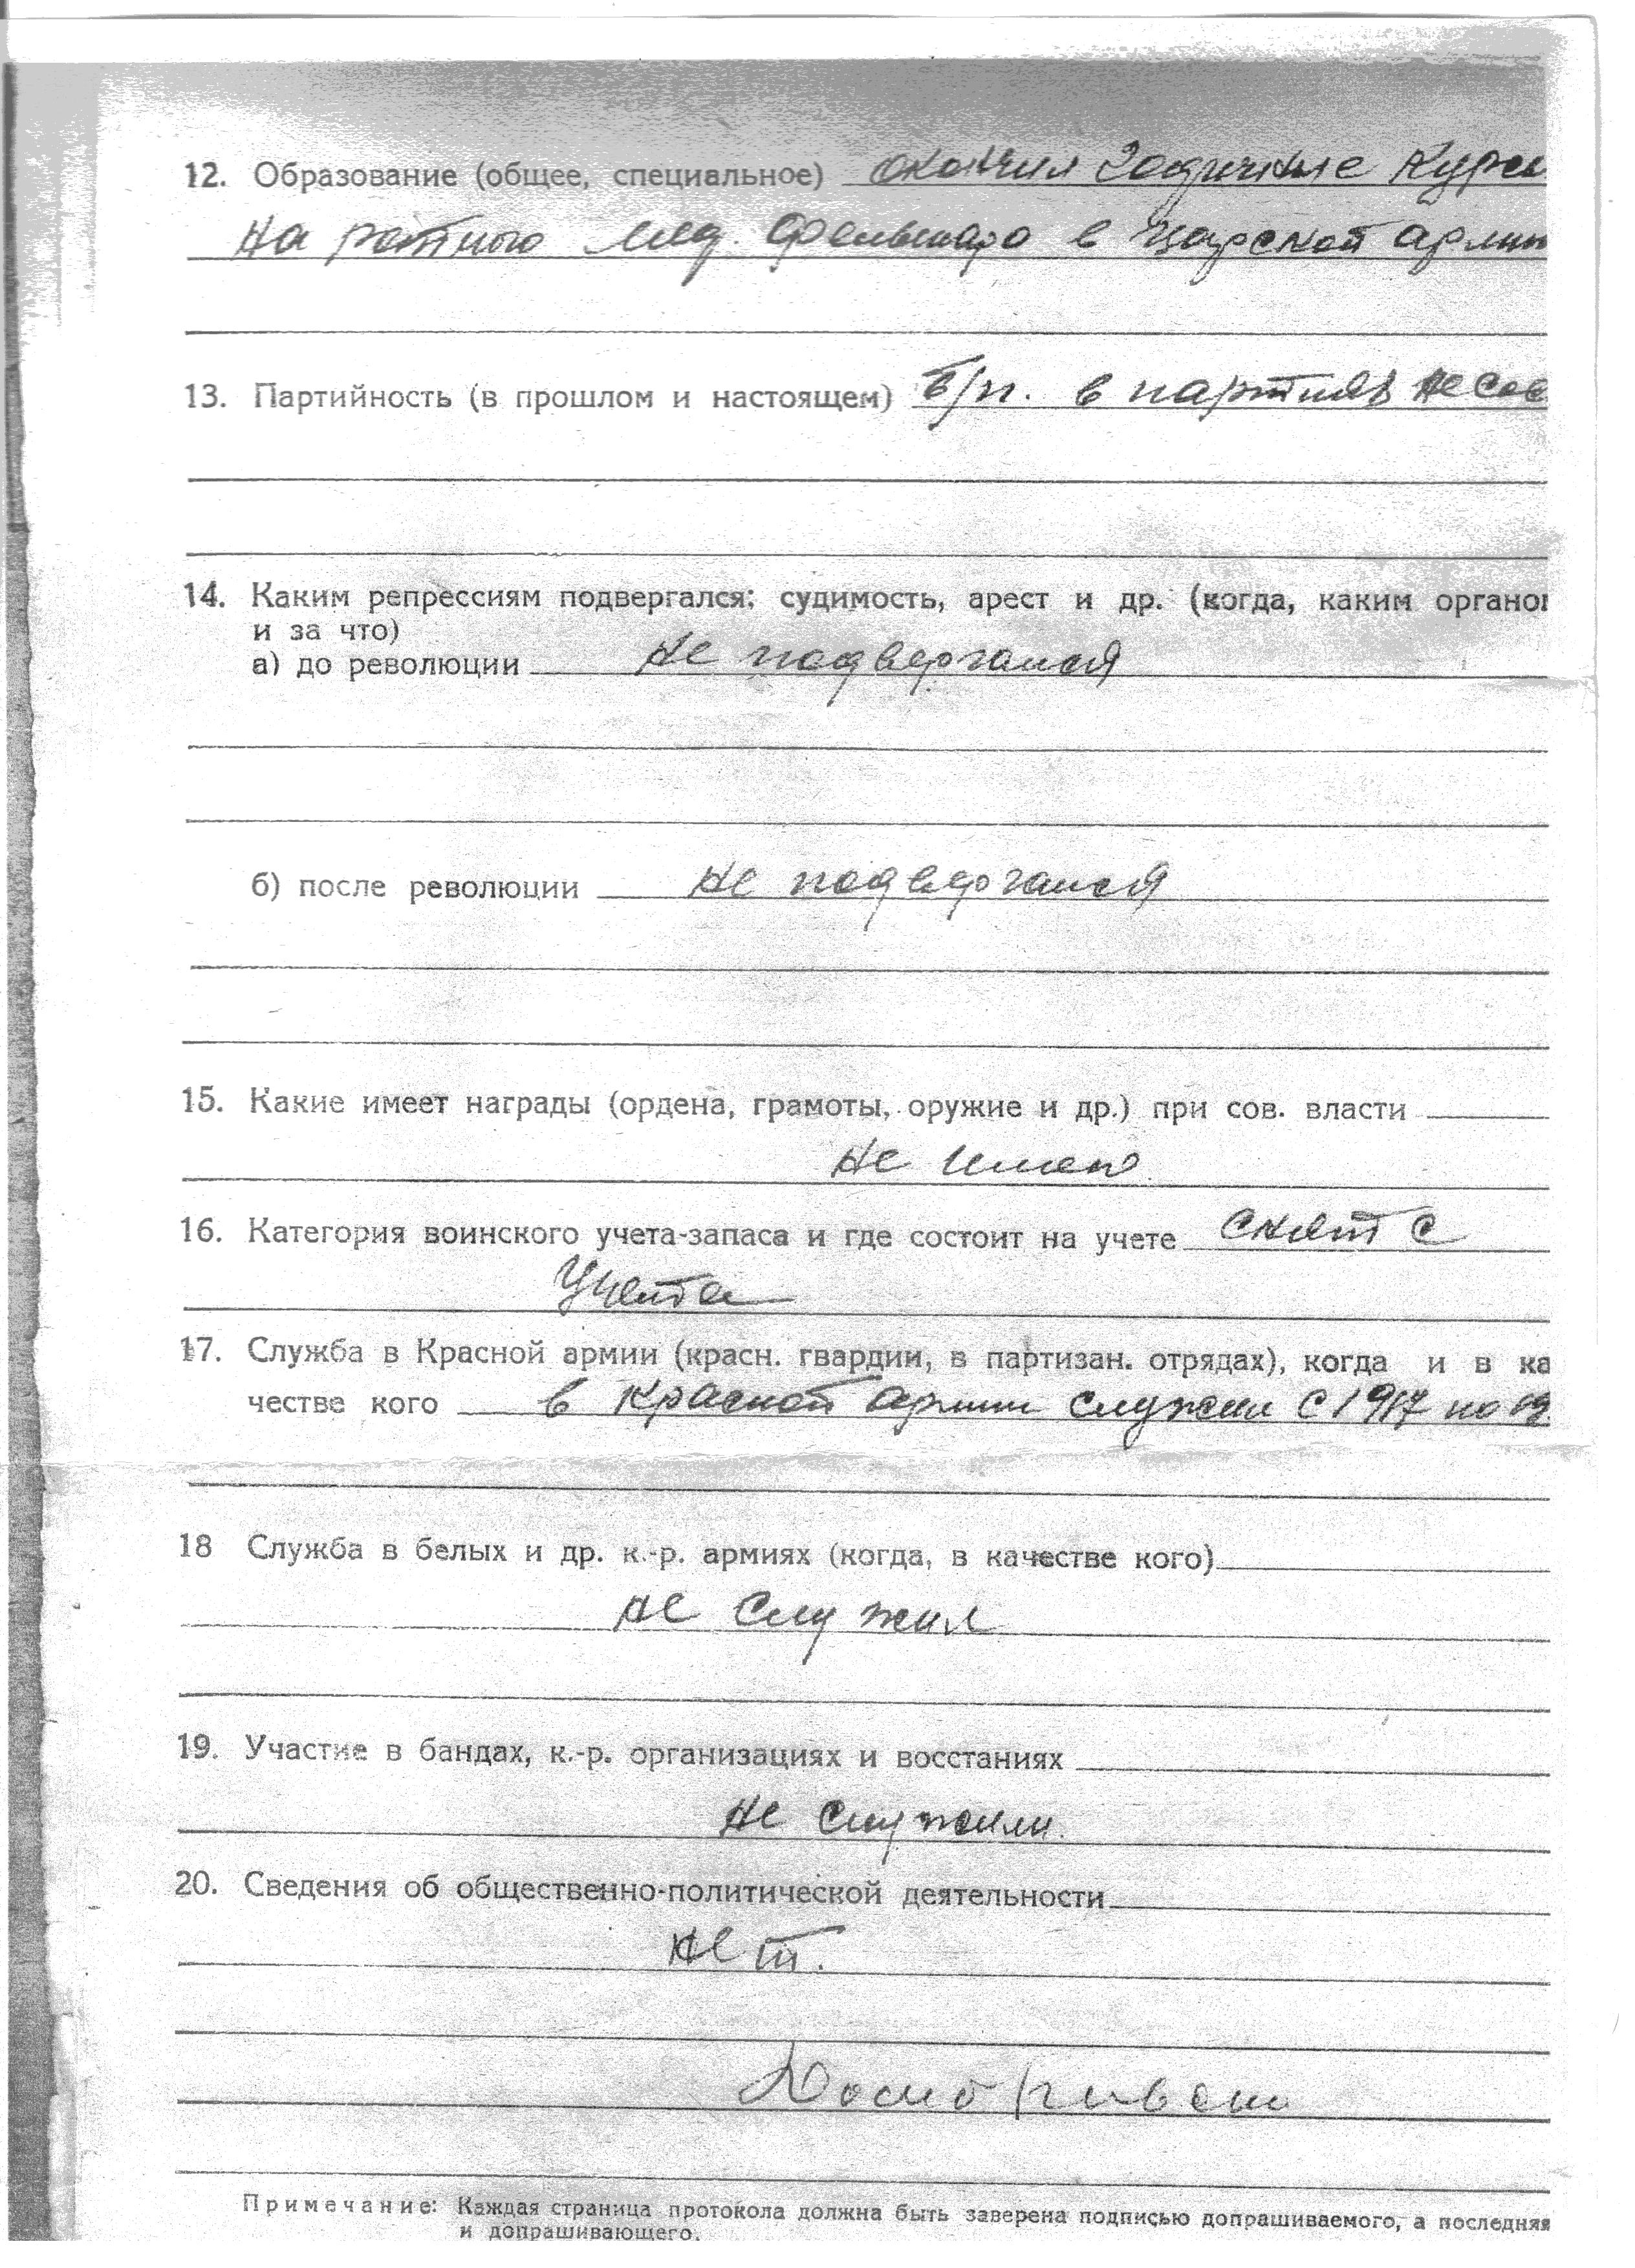 12. Образование (общее, специальное) окончил годичные курсы
на ротного мед. фельшара в царской армии
13. Партийность (в прошлом и настоящем) б/п. в партиях не сос
14. Каким репрессиям подвергался: судимость, арест и др. (когда, каким органом
и за что)
а) до революции не подвергался
б) после революции не подвергался
15. Какие имеет награды (ордена, грамоты, оружие и др.) при сов. власти
не имею
16. Категория воинского учета-запаса и где состоит на учете снят с
учета
17. Служба в Красной армии (красн. гвардии, в партизан. отрядах), когда и в ка
честве кого в красной армии служил с 1917 по 19
18 Служба в белых и др. к.-р. армиях (когда, в качестве кого)
не служил
19. Участие в бандах, к.-р. организациях и восстаниях
не служили.
20. Сведения об общественно-политической деятельности
нет.
Примечание: Каждая страница протокола должна быть заверена подписью допрашиваемого, а последняя
и допрашивающего.